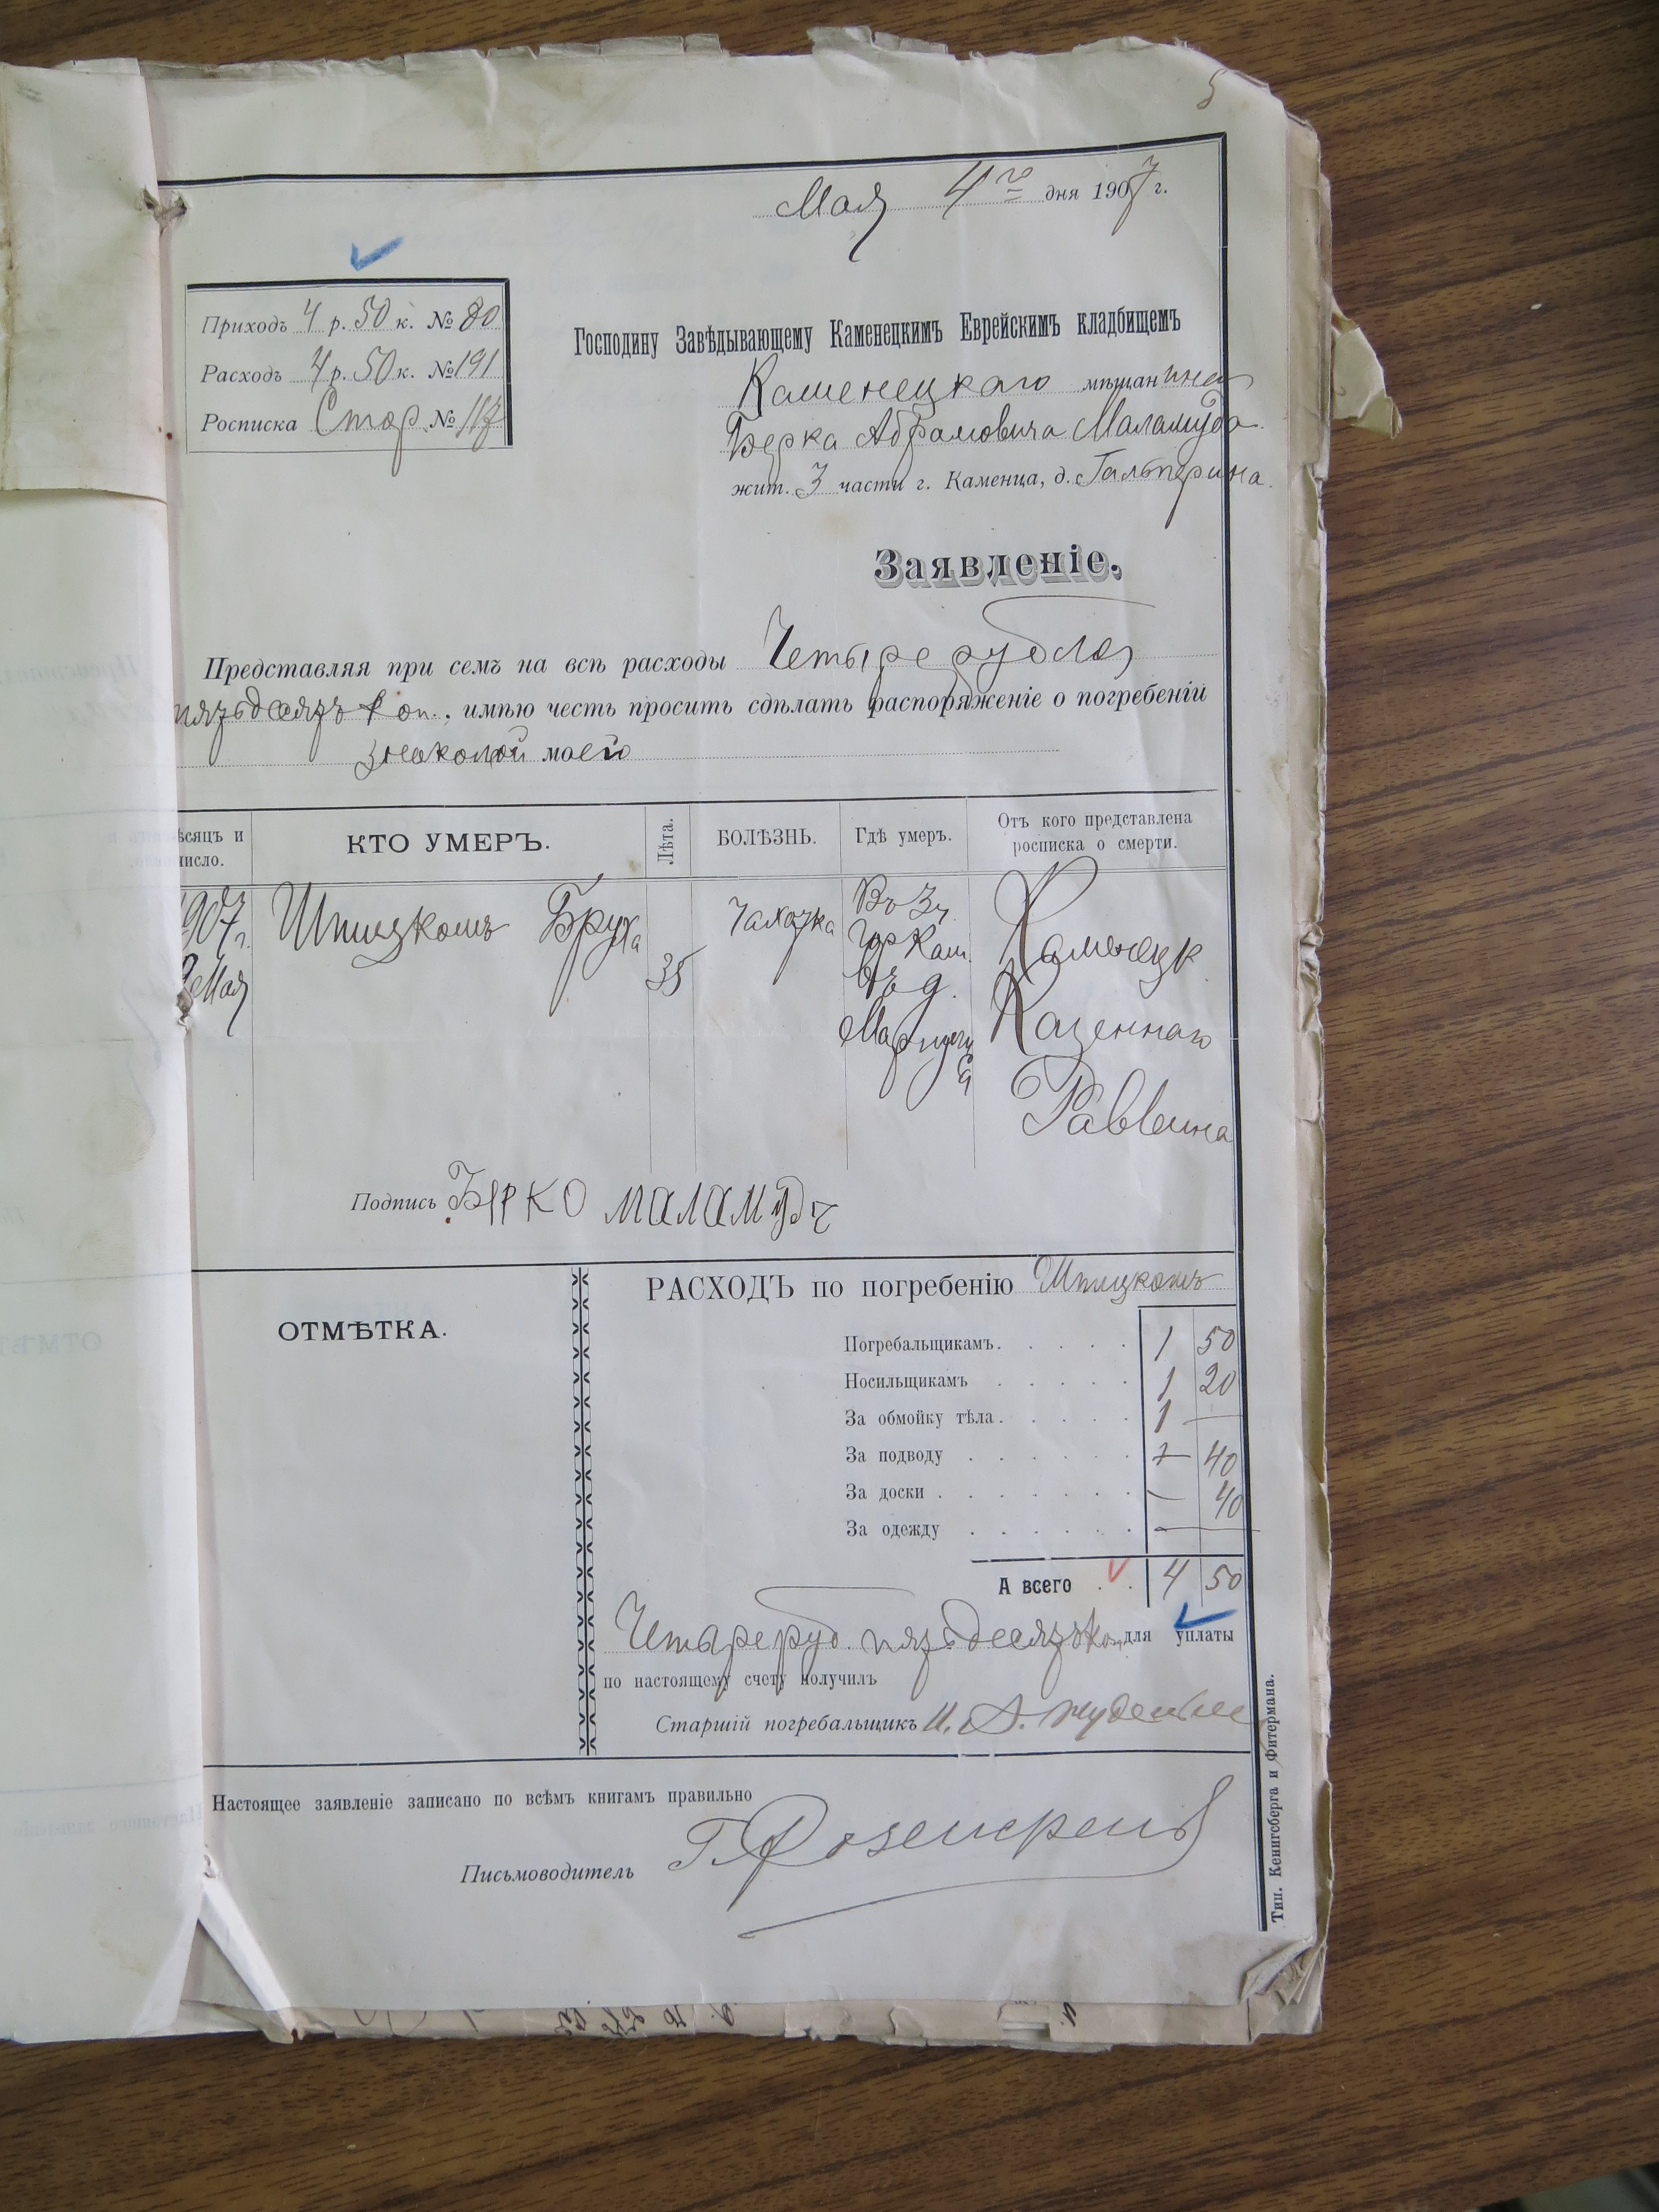 5
Мая 4го дня 1907 г.
Приходъ 4 р. 50 к. № 80
Расходъ 4 р. 50 к. № 191
Росписка Стор. № 117
Господину Завѣдывающему Каменецкимъ Еврейскимъ кладбищемъ
Каменецкаго мѣщанина
Берка Абрамовича Маламуда
жит. 3 части г. Каменца, д. Гальперина.
Заявленіе.
Представляя при семъ на всѣ расходы Четыре рубля
пятьдесятъ коп., имѣю честь просить сдѣлать распоряженіе о погребеніи
знакомой моей
ѣсяцъ и число.
КТО УМЕРЪ.
Лѣта.
БОЛѢЗНЬ.
Гдѣ умеръ.
Отъ кого представлена росписка о смерти.
1907 г. Мая
Шпицкопъ Бруха
35
Чахотка
Въ 3 ч. гор. Кам. въ д.
Каменецк Казеннаго Раввина
Подпись БЕРКО МАЛАМУДЪ
ОТМѢТКА.
РАСХОДЪ по погребенію Шпицкопъ
Погребальщикамъ. 1 50
Носильщикамъ 1 20
За обмойку тѣла. 1 —
За подводу — 40
За доски — 40
За одежду —
А всего 4 50
Четыре руб. пятьдесятъ коп. для уплаты
по настоящему счету получилъ
Старшій погребальщикъ
Настоящее заявленіе записано по всѣмъ книгамъ правильно
Письмоводитель Г. Розенкренъ
Тип. Кенигсберга и Фитермана.